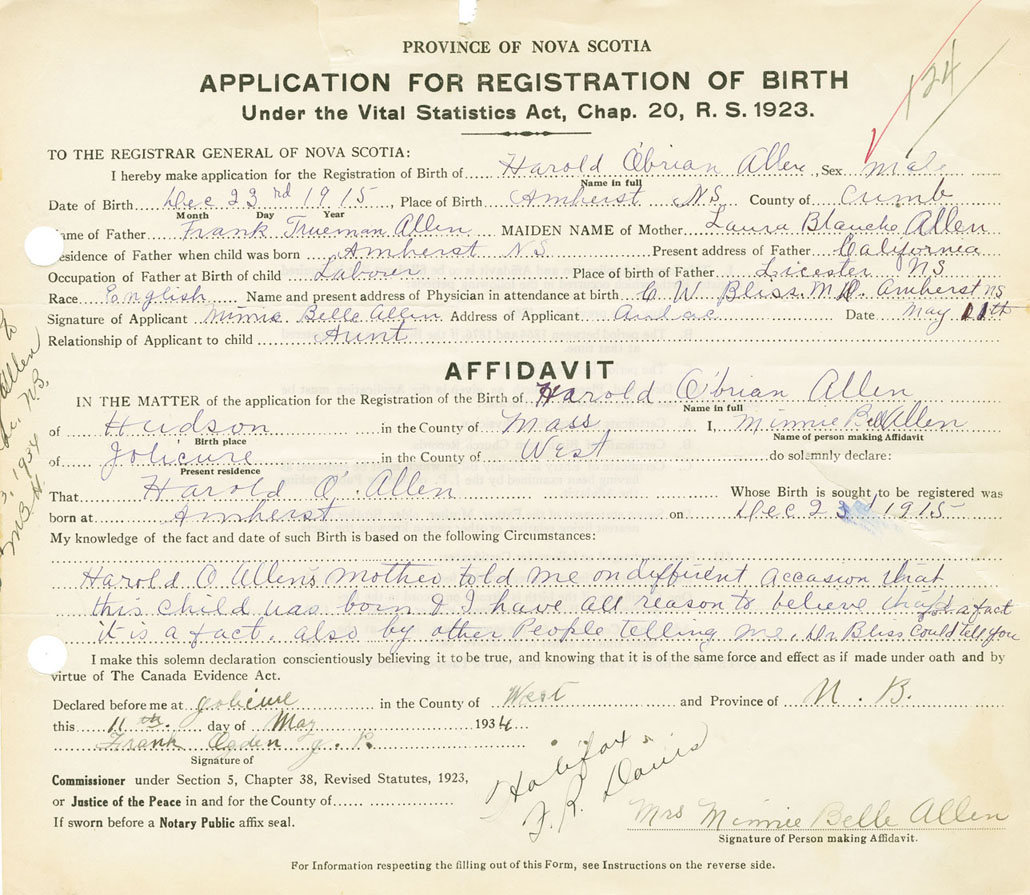 PROVINCE OF NOVA SCOTIA
124
APPLICATION FOR REGISTRATION OF BIRTH
Under the Vital Statistics Act, Chap. 20, R. S. 1923.
TO THE REGISTRAR GENERAL OF NOVA SCOTIA:
I hereby make application for the Registration of Birth of Harold O'brian Allen, Sex Male
Name in full
Date of Birth Dec 23rd 1915, Place of Birth Amherst N.S County of Cumb
Month Day Year
ame of Father Frank Trueman Allen MAIDEN NAME of Mother Laura Blanche Allen
esidence of Father when child was born Amherst NS Present address of Father California
Occupation of Father at Birth of child Labourer Place of birth of Father Licester NS
Race English Name and present address of Physician in attendance at birth C W Bliss M.D. Amherst NS
Signature of Applicant Minnie Belle Allen Address of Applicant Date May 11th
Relationship of Applicant to child Aunt
AFFIDAVIT
IN THE MATTER of the application for the Registration of the Birth of Harold O'brian Allen
Name in full
of Hudson in the County of Mass I, Minnie Bell Allen
Birth place Name of person making Affidavit
of Jolicure in the County of West do solemnly declare:
Present residence
That Harold O'. Allen Whose Birth is sought to be registered was
born at Amherst on Dec 23rd 1915
My knowledge of the fact and date of such Birth is based on the following Circumstances:
Harold O Allen's Mother told me on diffirent accasion that
this child was born & I have all reason to believe that a fact
it is a fact, also by other People telling me, Dr Bliss Could tell you
I make this solemn declaration conscientiously believing it to be true, and knowing that it is of the same force and effect as if made under oath and by
virtue of The Canada Evidence Act.
Declared before me at Jolicure in the County of West and Province of N. B.
this 11th. day of May 1934
Frank Ogden J. P.
Signature of
Commissioner under Section 5, Chapter 38, Revised Statutes, 1923,
or Justice of the Peace in and for the County of
If sworn before a Notary Public affix seal.
Halifax
F. R. Davis
Mrs Minnie Belle Allen
Signature of Person making Affidavit.
For Information respecting the filling out of this Form, see Instructions on the reverse side.
to
Allen
N.B.
1934